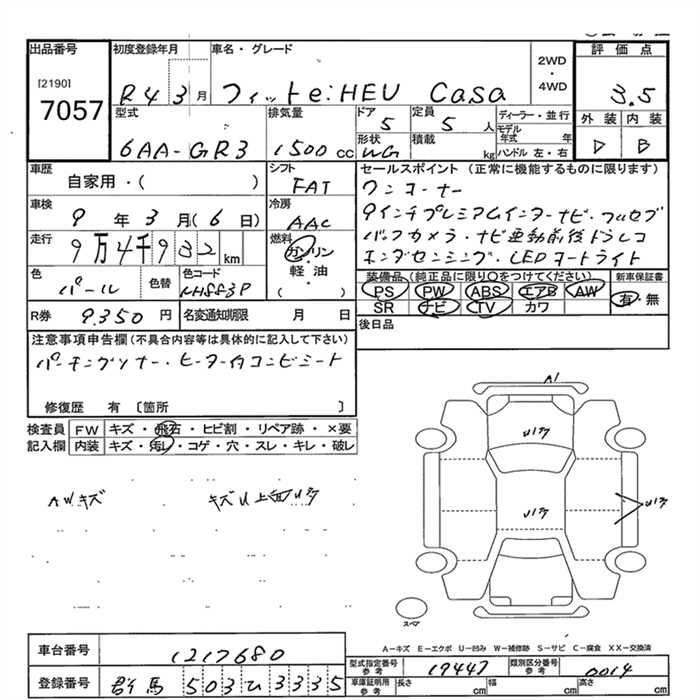 出品番号
[2190]
7057
初度登録年月
R4 3月
車名・グレード
フィットe:HEV Casa
2WD
・
4WD
評価点
3.5
外装 内装
D B
型式
6AA-GR3
排気量
1500 cc
ドア
5
定員
5 人
形状
WG
積載
kg
ディーラー・並行
モデル年式 年
ハンドル 左・右
車歴
自家用・( )
シフト
FAT
車検
9年3月(6日)
冷房
AAC
走行
9万4千932 km
燃料
ガソリン
軽油
( )
色
パール
色替
色コード
NH883P
R券 9.350 円
名変通知期限 月 日
セールスポイント(正常に機能するものに限ります)
ワンオーナー
9インチプレミアムインターナビ・フルセグ
バックカメラ・ナビ連動前後ドラレコ
ホンダセンシング・LEDヘッドライト
装備品(純正品に限り○をつけてください)
PS PW ABS エアB AW
SR ナビ TV カワ
新車保証書
有・無
後日品
注意事項申告欄(不具合内容等は具体的に記入して下さい)
パーキングソナー・ヒーター付コンビシート
修復歴 有 〔箇所 〕
検査員記入欄
FW キズ・飛石・ヒビ割・リペア跡・×要
内装 キズ・汚レ・コゲ・穴・スレ・キレ・破レ
AWキズ
キズU上面Uヶ
A1
スペア
A－キズ E－エクボ U－凹み W－補修跡 S－サビ C－腐食 XX－交換済
車台番号 1217680
登録番号 群馬 503ひ3335
型式指定番号 参考 19447
類別区分番号 参考 0014
車庫証明用 参考 長さ cm 幅 cm 高さ cm